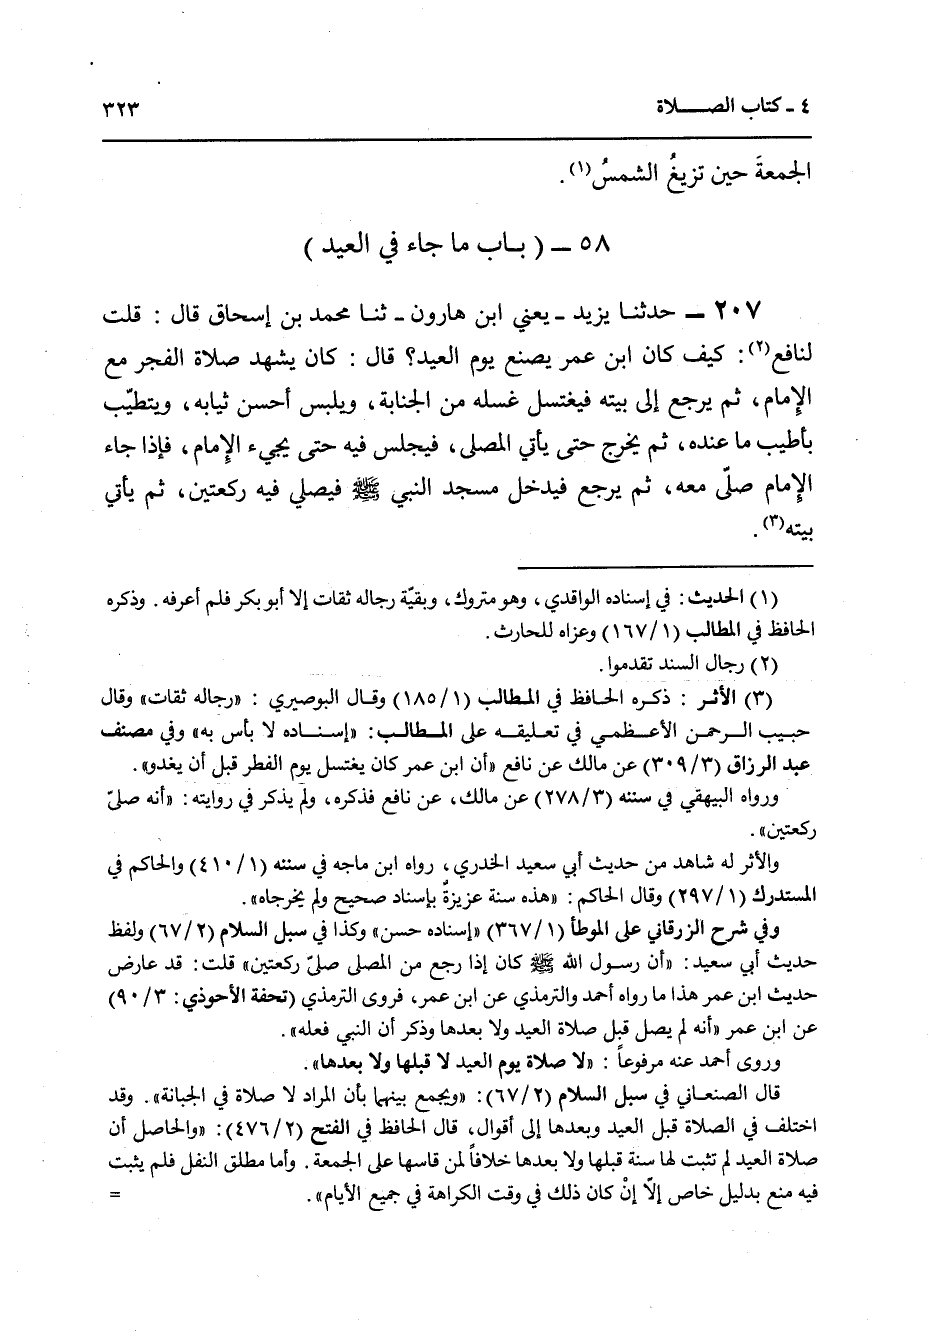 ٤ ـ كتاب الصـــلاة ٣٢٣
الجمعةَ حين تزيغُ الشمسُ(١).
٥٨ ــ ( بـاب ما جاء في العيد )
٢٠٧ ــ حدثنـا يزيد ـ يعني ابن هارون ـ ثنـا محمد بن إسحاق قال : قلت
لنافع(٢): كيف كان ابن عمر يصنع يوم العيد؟ قال : كان يشهد صلاة الفجر مع
الإمام، ثم يرجع إلى بيته فيغتسل غسله من الجنابة، ويلبس أحسن ثيابه، ويتطيّب
بأطيب ما عنده، ثم يخرج حتى يأتي المصلى، فيجلس فيه حتى يجيء الإمام، فإذا جاء
الإمام صلّى معه، ثم يرجع فيدخل مسجد النبي ﷺ فيصلي فيه ركعتين، ثم يأتي
بيته(٣).
(١) الحديث: في إسناده الواقدي، وهو متروك، وبقيّة رجاله ثقات إلا أبو بكر فلم أعرفه. وذكره
الحافظ في المطالب (١/١٦٧) وعزاه للحارث.
(٢) رجال السند تقدموا.
(٣) الأثـر : ذكـره الحـافظ في المـطالب (١/١٨٥) وقـال البوصيري : «رجاله ثقات» وقال
حبيب الـرحمـن الأعـظمـي في تعـليقـه على المـطالـب: «إسنـاده لا بـأس به» وفي مصنف
عبد الرزاق (٣/٣٠٩) عن مالك عن نافع «أن ابن عمر كان يغتسل يوم الفطر قبل أن يغدو».
ورواه البيهقي في سننه (٣/٢٧٨) عن مالك، عن نافع فذكره، ولم يذكر في روايته: «أنه صلىّ
ركعتين».
والأثر له شاهد من حديث أبي سعيد الخدري، رواه ابن ماجه في سننه (١/٤١٠) والحاكم في
المستدرك (١/٢٩٧) وقال الحاكم: «هذه سنة عزيزةٌ بإسناد صحيح ولم يخرجاه».
وفي شرح الزرقاني على الموطأ (١/٣٦٧) «إسناده حسن» وكذا في سبل السلام (٢/٦٧) ولفظ
حديث أبي سعيد: «أن رسول الله ﷺ كان إذا رجع من المصلى صلىّ ركعتين» قلت: قد عارض
حديث ابن عمر هذا ما رواه أحمد والترمذي عن ابن عمر، فروى الترمذي (تحفة الأحوذي: ٣/٩٠)
عن ابن عمر «أنه لم يصل قبل صلاة العيد ولا بعدها وذكر أن النبي فعله».
وروى أحمد عنه مرفوعاً : «لا صلاة يوم العيد لا قبلها ولا بعدها».
قال الصنعـاني في سبل السلام (٢/٦٧): «ويجمع بينهما بأن المراد لا صلاة في الجبانة». وقد
اختلف في الصلاة قبل العيد وبعدها إلى أقوال، قال الحافظ في الفتح (٢/٤٧٦): «والحاصل أن
صلاة العيد لم تثبت لها سنة قبلها ولا بعدها خلافاً لمن قاسها على الجمعة. وأما مطلق النفل فلم يثبت
فيه منع بدليل خاص إلاّ إنْ كان ذلك في وقت الكراهة في جميع الأيام». =